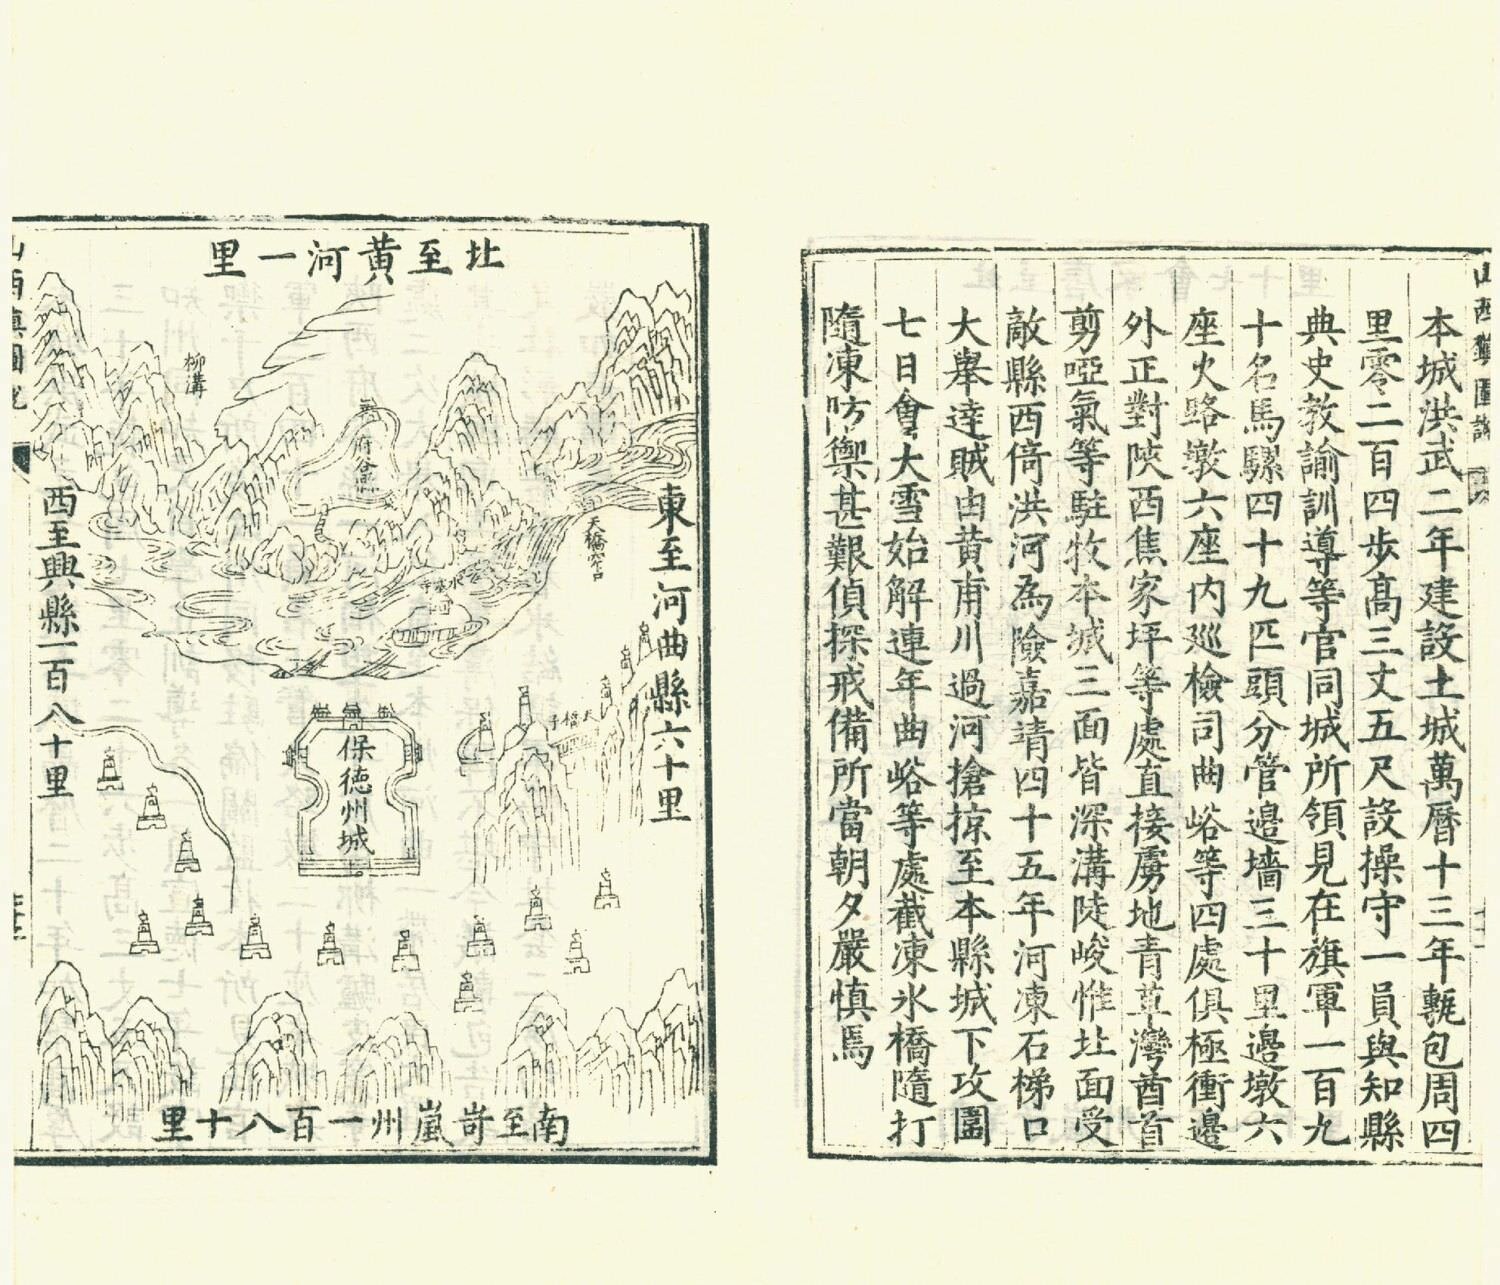 本城洪武二年建設土城萬曆十三年甎包周四
里零二百四步高三丈五尺設操守一員與知縣
典史教諭訓導等官同城所領見在旗軍一百九
十名馬騾四十九匹頭分管邊墻三十里邊墩六
座火路墩六座內廵檢司曲峪等四處俱極衝邊
外正對陝西焦家坪等處直接虜地青草灣酋首
剪啞氣等駐牧本城三面皆深溝陡峻惟北面受
敵縣西倚洪河為險嘉靖四十五年河凍石梯口
大舉達賊由黄甫川過河搶掠至本縣城下攻圍
七日會大雪始解連年曲峪等處截凍氷橋隨打
隨凍防禦甚艱偵探戒備所當朝夕嚴慎焉
北至黄河一里
東至河曲縣六十里
西至興縣一百八十里
南至岢嵐州一百八十里
柳溝
府谷縣
天橋
水寨寺
天橋子
保德州城